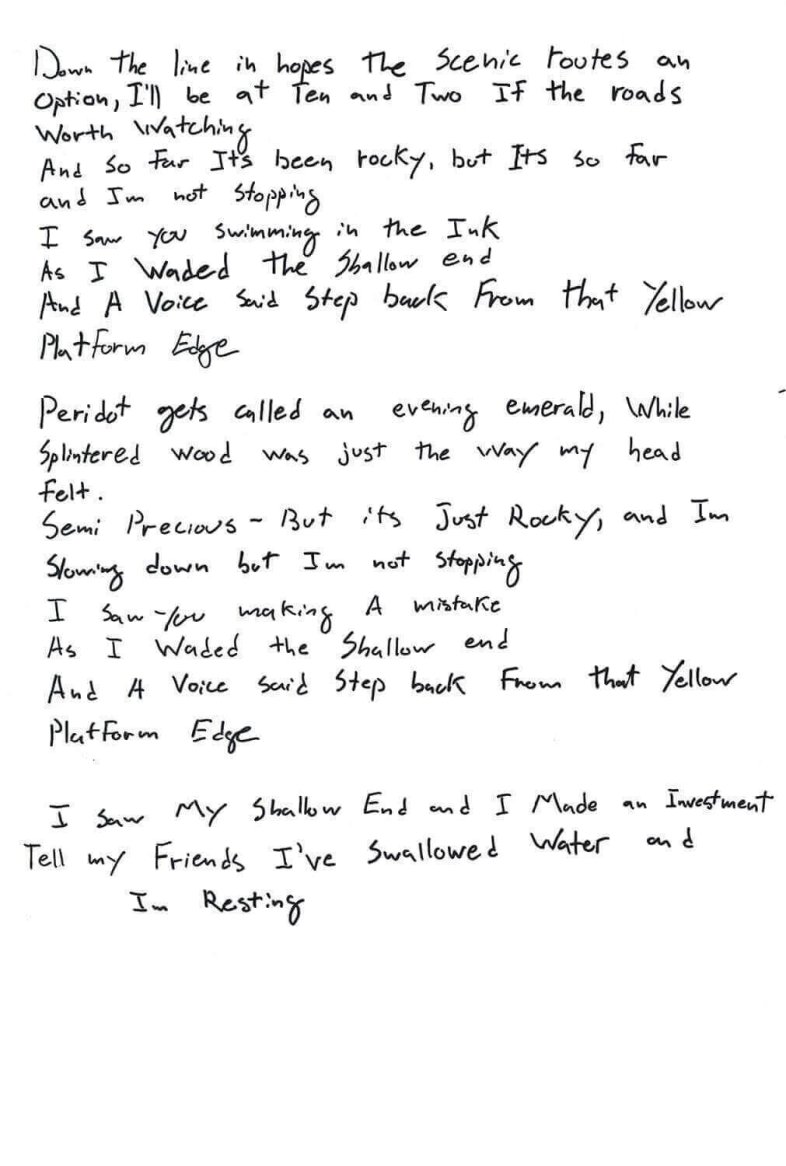 Down the line in hopes the Scenic routes an
Option, I'll be at Ten and Two If the roads
Worth Watching
And So far It's been rocky, but Its so far
and Im not Stopping
I saw you swimming in the Ink
As I Waded the Shallow end
And A Voice Said Step back From that Yellow
Platform Edge
Peridot gets called an evening emerald, While
Splintered wood was just the way my head
felt.
Semi Precious - But its Just Rocky, and Im
Slowing down but Im not Stopping
I saw you making A mistake
As I Waded the Shallow end
And A Voice said Step back From that Yellow
Platform Edge
I saw My Shallow End and I Made an Investment
Tell my Friends I've Swallowed Water and
Im Resting